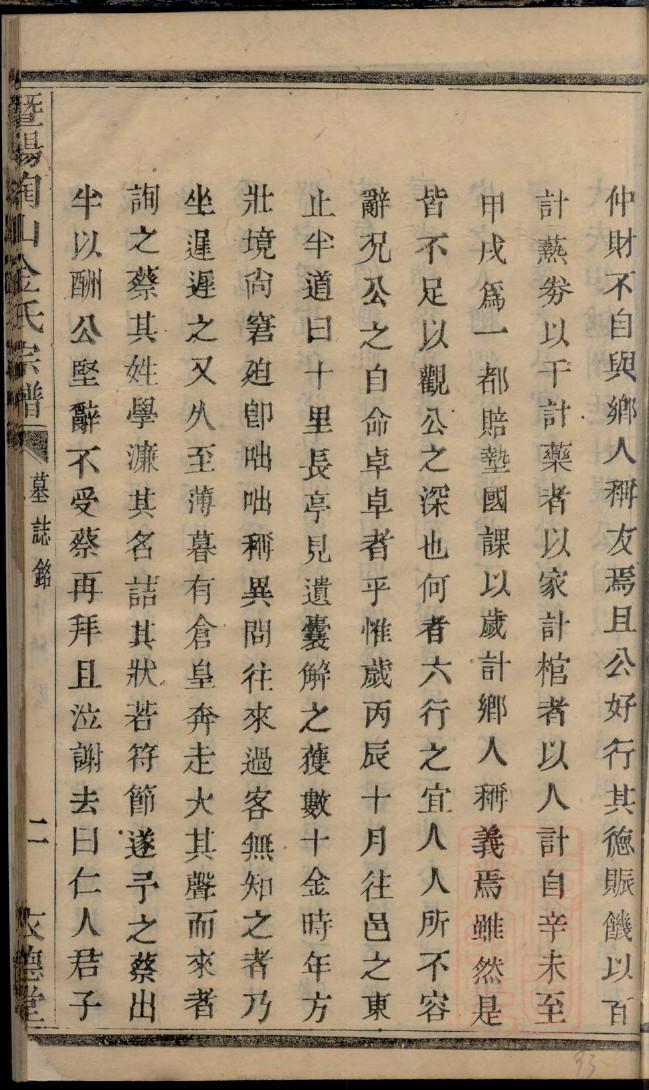 仲財不自與鄉人稱友焉且公好行其德賑饑以百
計爇劵以千計藥者以家計棺者以人計自辛未至
甲戌爲一都賠墊國課以歲計鄉人稱義焉雖然是
皆不足以觀公之深也何者六行之宜人人所不容
辭况公之自命卓卓者乎惟歲丙辰十月往邑之東
止半道曰十里長亭見遺囊解之獲數十金時年方
壯境尙窘廹卽咄咄稱異問往來過客無知之者乃
坐遲遲之又久至薄暮有倉皇奔走大其聲而來者
詢之蔡其姓學濂其名詰其狀若符節遂予之蔡出
半以酬公堅辭不受蔡再拜且泣謝去曰仁人君子
暨陽山金氏宗譜
墓誌銘
二
文德堂
93